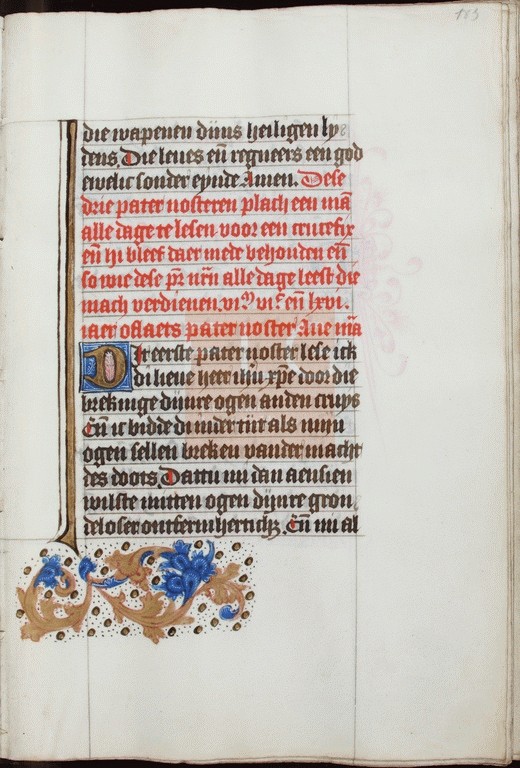 185
die wapenen dijns heiligen ly
dens. Die leues en̄ regneers een god
ewelic sonder eynde Amen. Dese
drie pater nosteren plach een mā
alle dage te lesen voor een crucefix
en̄ hi bleef daer mede behouden en̄
so wie dese pr̄ nr̄n alle dage leest die
mach verdienen. vi vi en̄ lxvi.
iaer oflaets pater noster Aue mīa
Dit eerste pater noster lese ick
di lieue heer ihū xp̄e door die
brekinge dijnre ogen an den cruys
En̄ ic bidde di in der tijt als mijn
ogen sellen breken van der macht
des doots. Dattu mi dan aensien
wilste mitten ogen dijnre gron
deloser ontfermherticheit. En̄ mi al